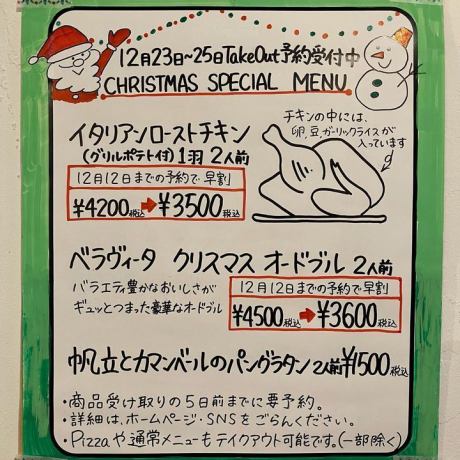 12月23日~25日TakeOut予約受付中
CHRISTMAS SPECIAL MENU
チキンの中には、
卵、豆、ガーリックライスが
入っています
イタリアンローストチキン
(グリルポテト付)1羽 2人前
12月12日までの予約で早割
¥4200税込➡¥3500税込
ベラヴィータ クリスマス オードブル 2人前
バラエティ豊かなおいしさが
ギュッとつまった豪華なオードブル
12月12日までの予約で早割
¥4500税込➡¥3600税込
帆立とカマンベールのパングラタン 2人前¥1500税込
・商品受け取りの5日前までに要予約。
・詳細は、ホームページ・SNSをごらんください。
・Pizzaや通常メニューもテイクアウト可能です。(一部除く)